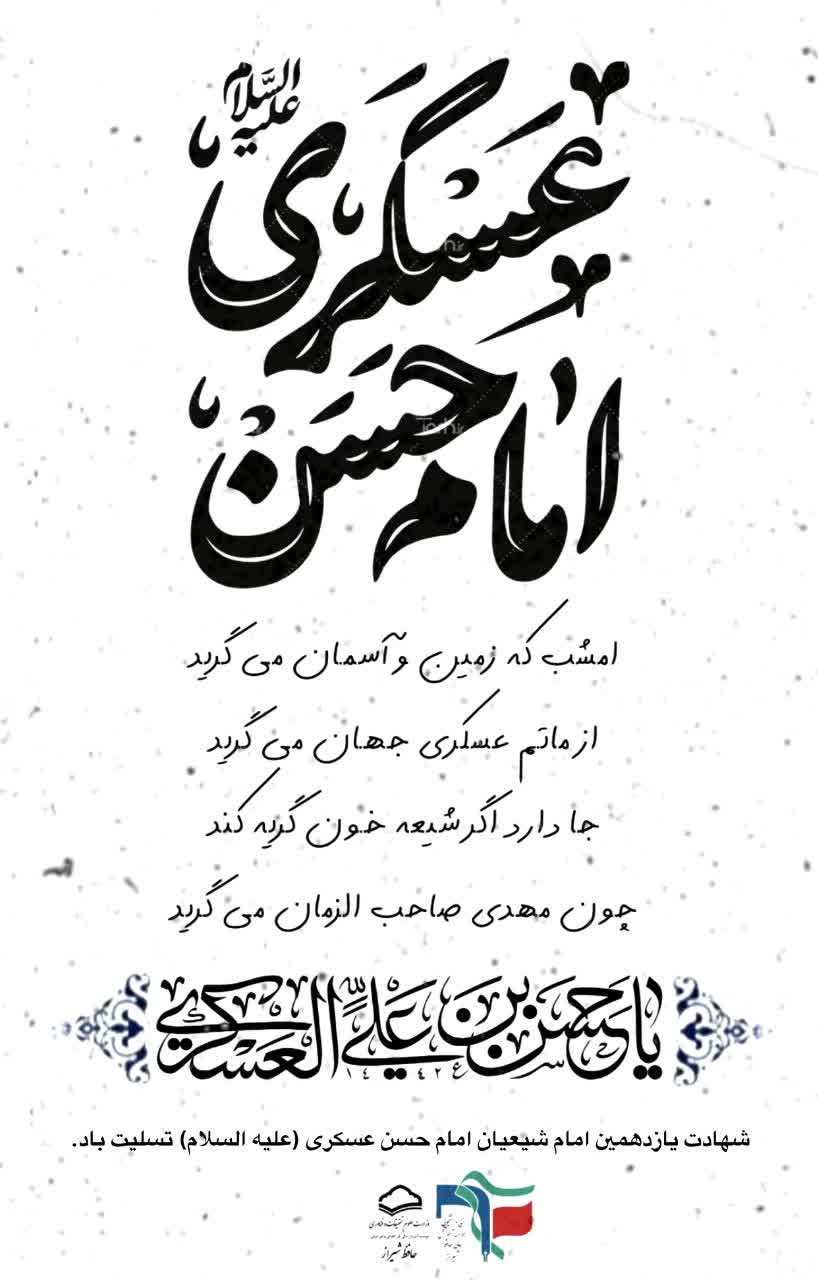 امام حسن
عسکری
علیه السَّلام
امشب که زمین و آسمان می گرید
از ماتم عسکری جهان می گرید
جا دارد اگر شیعه خون گریه کند
چون مهدی صاحب الزمان می گرید
یا حسن بن علیٍّ العسکری
۱۴۴۲
شهادت یازدهمین امام شیعیان امام حسن عسکری (علیه السلام) تسلیت باد.
وزارت علوم تحقیقات و فناوری
حافظ شیراز